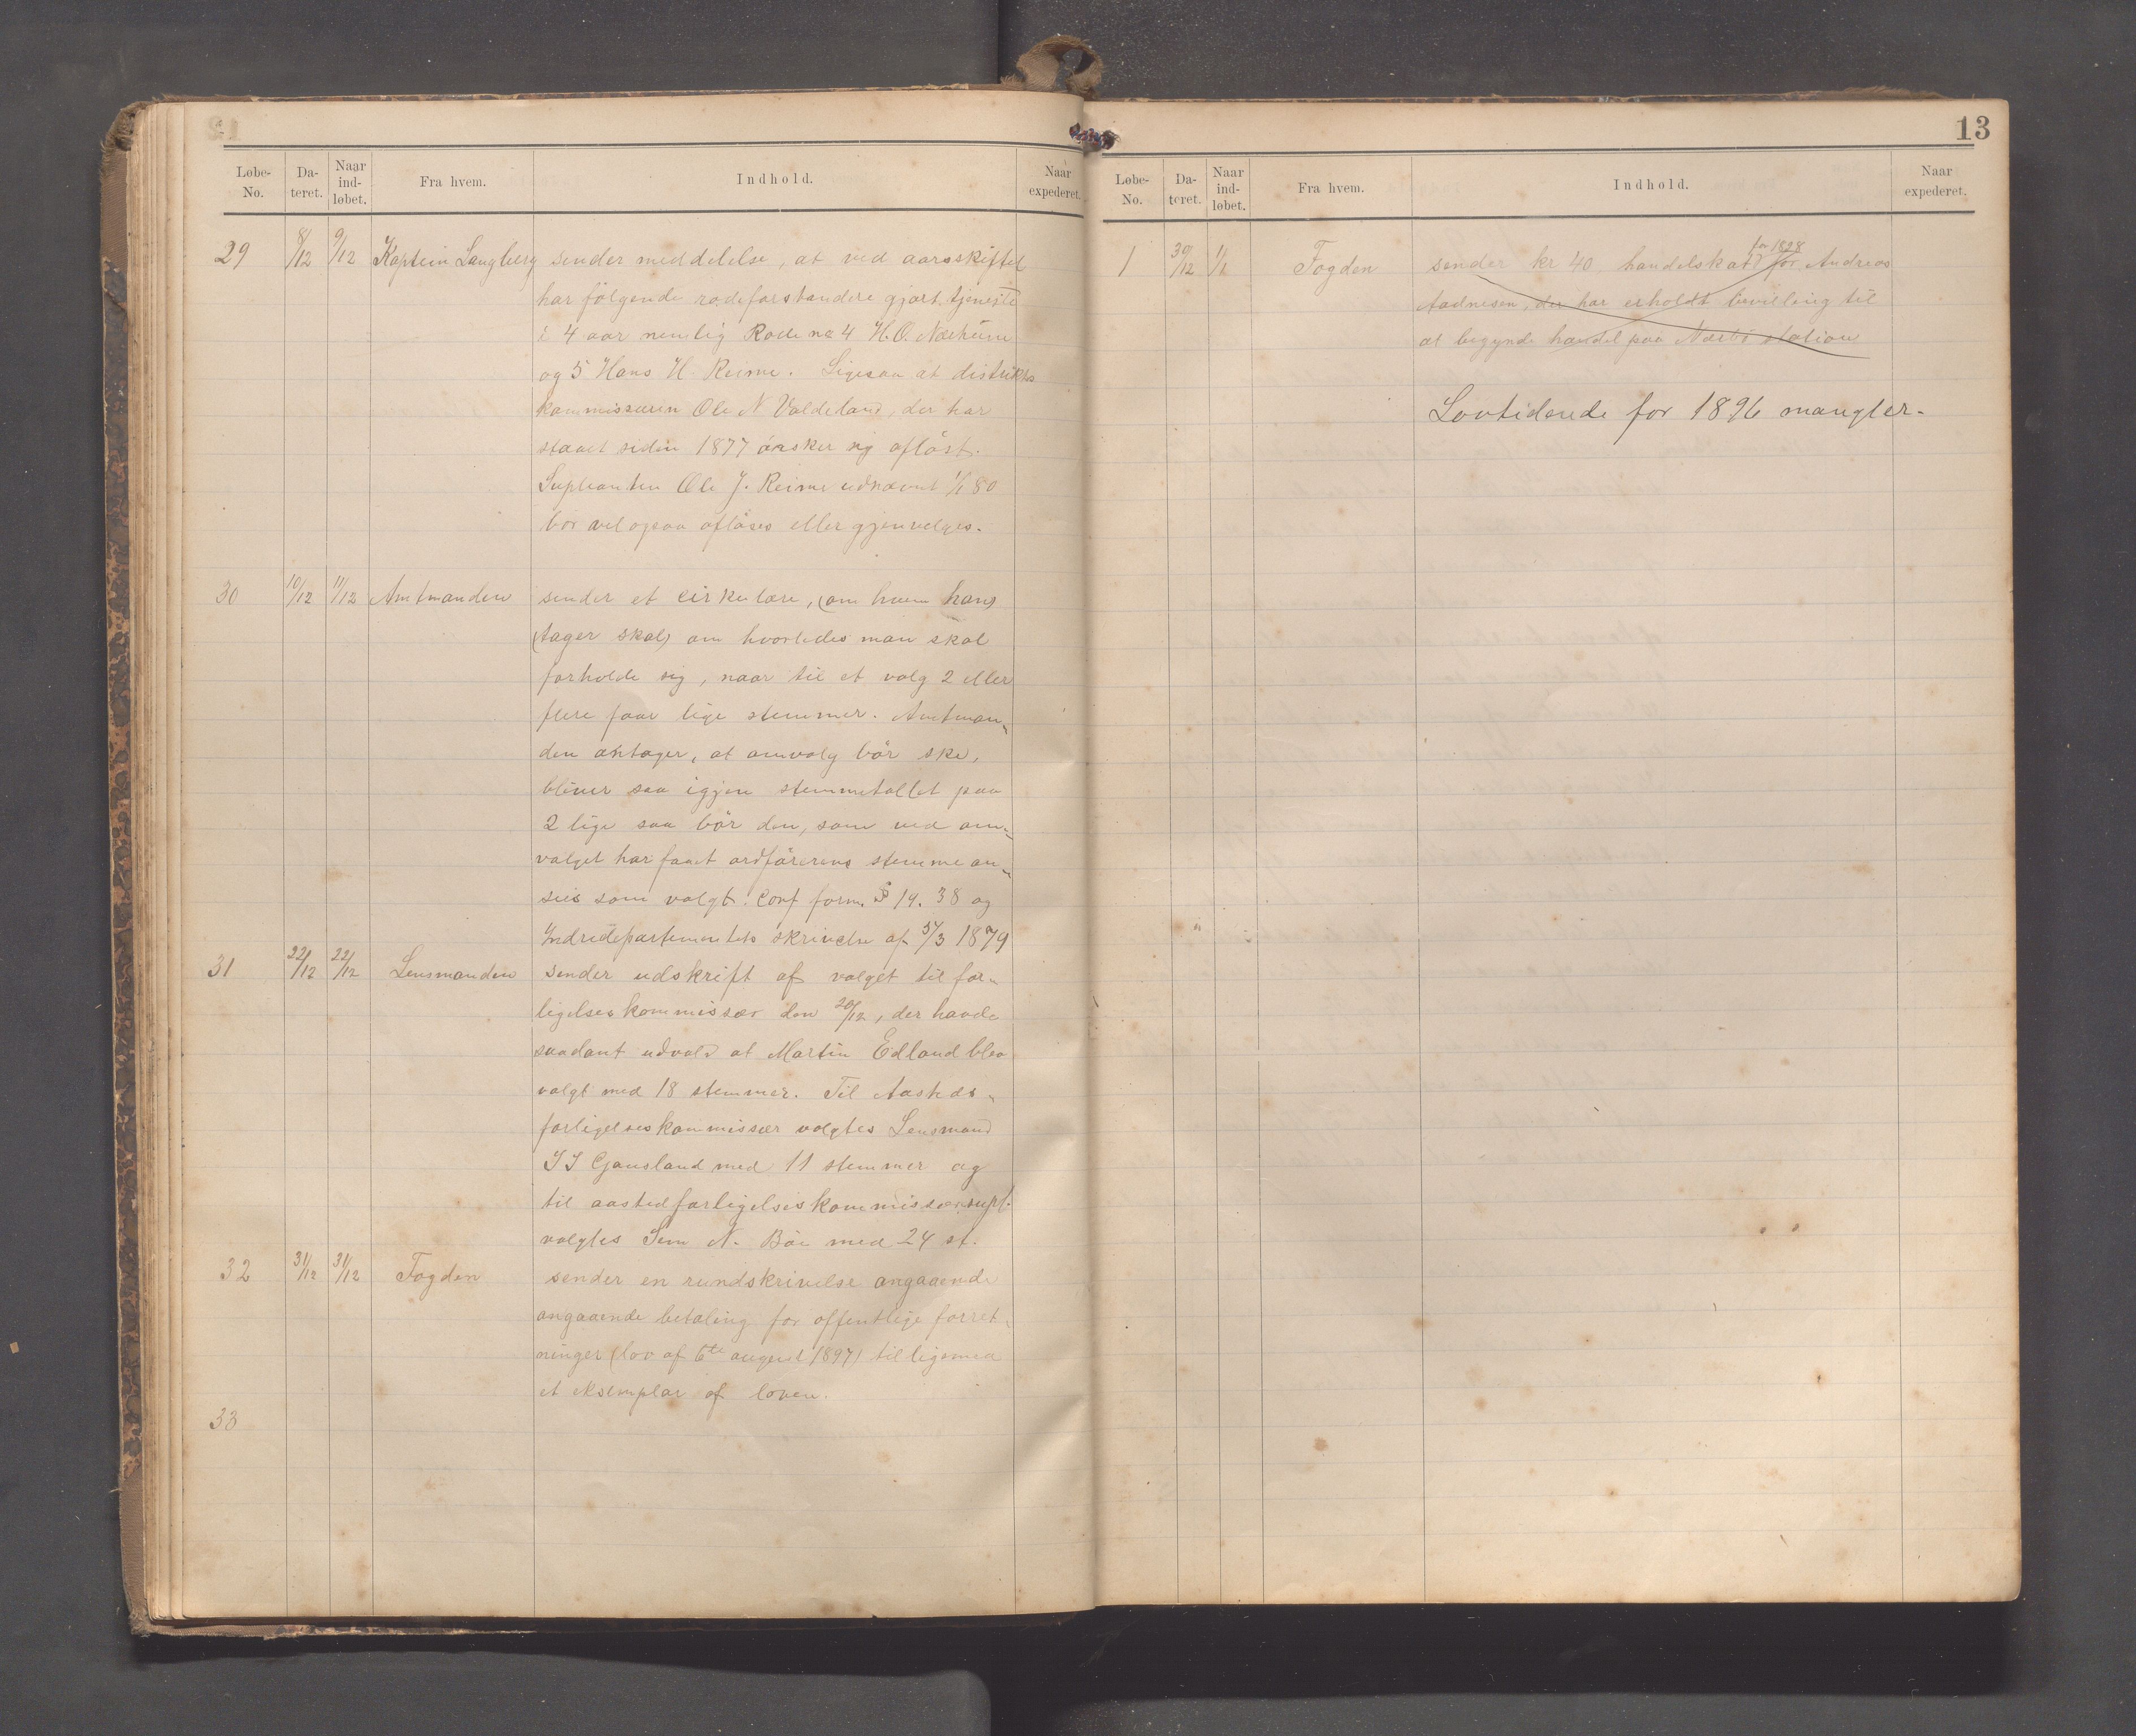 Løbe-No. Da-teret. Naar ind-løbet. Fra hvem. Indhold. Naar expederet.
29 8/12 9/12 Kaptein Langberg sender meddelelse, at ved aarsskiftet
har følgende rodeforstandere gjort tjeneste
i 4 aar nemlig Rode no 4 H.O. Nærheim
og 5 Hans H. Reime. Ligesaa at distrikts
kommissæren Ole N Valdeland, der har
staaet siden 1877 ønsker sig afløst.
Supleanten Ole J. Reime udnævnt 1/1 80
bør vel ogsaa afløses eller gjenvelges.
30 10/12 11/12 Amtmanden sender et cirkulære, (om hvem han)
(tager skal) om hvorledes man skal
forholde sig, naar til et valg 2 eller
flere faar lige stemmer. Amtman-
den antager, at omvalg bør ske,
bliver saa igjen stemmetallet paa
2 lige saa bør den, som ved om-
valget har faaet ordførerens stemme an-
sees som valgt. Conf form. § 19. 38 og
Indredepartementets skrivelse af 5/3 1879
31 22/12 22/12 Lensmanden sender udskrift af valget til for-
ligelseskommissær den 20/12, der havde
saadant udvald at Martin Edland blev
valgt med 18 stemmer. Til Aasteds-
forligelseskommissær valgtes Lensmand
Gausland med 11 stemmer og
til aastedforligelseskommissærsupl.
valgtes N. Bøe med 24 st.
32 31/12 31/12 Fogden sender en rundskrivelse angaaende
angaaende betaling for offentlige forret-
ninger (lov af 6te august 1897) tilligemed
et eksemplar af loven.
33
13
Løbe-No. Da-teret. Naar ind-løbet. Fra hvem. Indhold. Naar expederet.
for 1898
1 30/12 1/1 Fogden sender kr 40 handelskat for Andreas
Aadnesen, der har erholdt bevilling til
at begynde handel paa Nærbø station
Lovtidende for 1896 mangler.